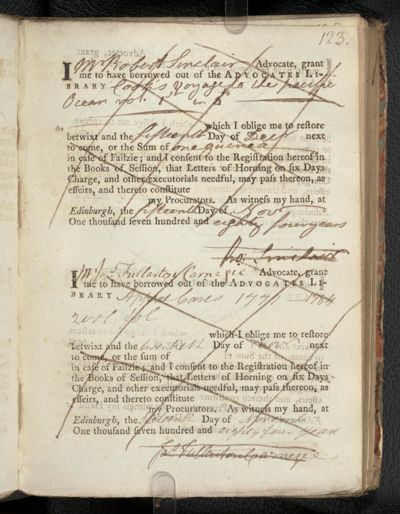 123.
I Mr Robert Sinclair Advocate, grant
me to have borrowed out of the ADVOCATES LI-
BRARY Cooks Voyage to the Pacific
Ocean vol. 1 in
which I oblige me to reſtore
betwixt and the fifteenth Day of Decr next
to come, or the Sum of one guinea
in caſe of Failzie; and I conſent to the Regiſtration hereof in
the Books of Seſſion, that Letters of Horning on ſix Days
Charge, and other executorials needful, may paſs thereon, as
effeirs, and thereto conſtitute
my Procurators. As witneſs my hand, at
Edinburgh, the fifteenth Day of Novr
One thouſand ſeven hundred and eighty four years
Ro: Sinclair
I Mr Jas. Fullarton Carnegie Advocate, grant
me to have borrowed out of the ADVOCATES LI-
BRARY Cases 1776
vol
which I oblige me to reſtore
betwixt and the Day of next
to come, or the ſum of
in caſe of Failzie; and I conſent to the Regiſtration hereof in
the Books of Seſſion, that Letters of Horning on ſix Days
Charge, and other executorials needful, may paſs thereon, as
effeirs, and thereto conſtitute
my Procurators. As witneſs my hand, at
Edinburgh, the Day of
One thouſand ſeven hundred and eighty four years
Jas. Fullarton Carnegie